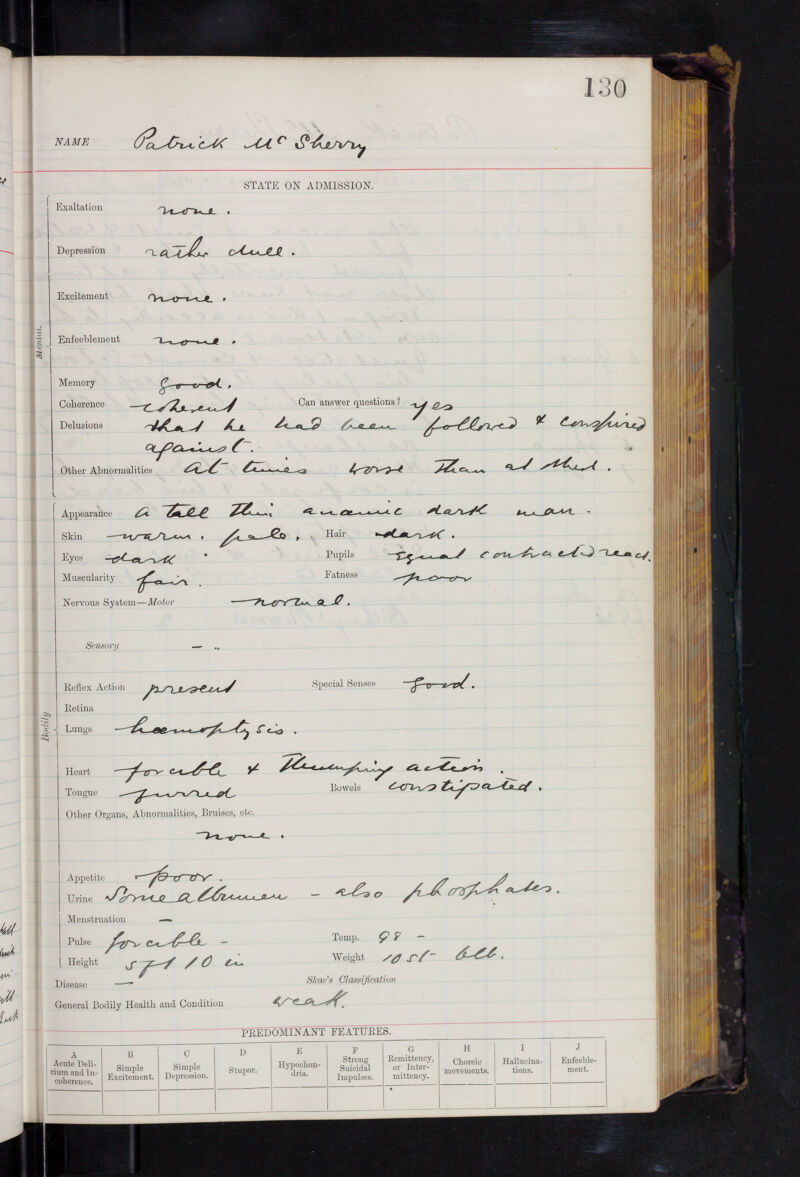 130
NAME Patrick McSherry
STATE ON ADMISSION.
Mental.
Exaltation none.
Depression rather dull.
Excitement none.
Enfeeblement none.
Memory good.
Coherence coherent Can answer questions? yes
Delusions that he had been followed & conspired
against.
Other Abnormalities At times worse than at others.
Bodily
Appearance A tall thin anaemic dark man.
Skin warm. pale. Hair dark.
Eyes dark Pupils equal contracted react.
Muscularity fair. Fatness poor
Nervous System—Motor normal.
Sensory — „
Reflex Action present Special Senses good.
Retina
Lungs haemoptysis.
Heart forcible & thumping action.
Tongue furred Bowels constipated.
Other Organs, Abnormalities, Bruises, etc.
none.
Appetite poor.
Urine Some albumen - also phosphates.
Menstruation —
Pulse forcible - Temp. 98 -
Height 5ft 10 in Weight 10st 6lb.
Disease — Skae's Classification
General Bodily Health and Condition weak.
PREDOMINANT FEATURES.
A B C D E F G H I J
Acute Delirium and Incoherence. Simple Excitement. Simple Depression. Stupor. Hypochondria. Strong Suicidal Impulses. Remittency, or Intermittency. Choreic movements. Hallucinations. Enfeeblement.